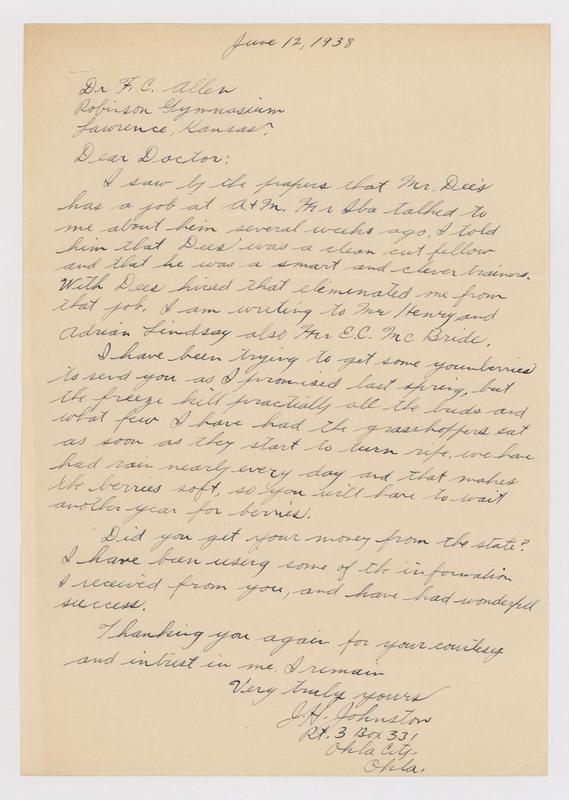 June 12, 1938
Dr F. C. Allen
Robinson Gymnasium
Lawrence, Kansas.
Dear Doctor:
I saw by the papers that Mr. Dees
has a job at A+M. Mr Iba talked to
me about him several weeks ago, I told
him that Dees was a clean cut fellow
and that he was a smart and clever trainer.
With Dees hired that eliminated me from
that job. I am writing to Mr Henry and
Adrian Lindsay also Mr E.C. McBride.
I have been trying to get some younberries
to send you as I promised last spring, but
the freeze kill practially all the buds and
what few I have had the grasshoppers eat
as soon as they start to turn ripe, we have
had rain nearly every day and that makes
the berries soft, so you will have to wait
another year for berries.
Did you get your money from the state?
I have been using some of the information
I received from you, and have had wonderful
success.
Thanking you again for your courtesy
and intrist in me. I remain
Very truly yours
J.H. Johnston
Rt. 3 Box 331
Okla City.
Okla.